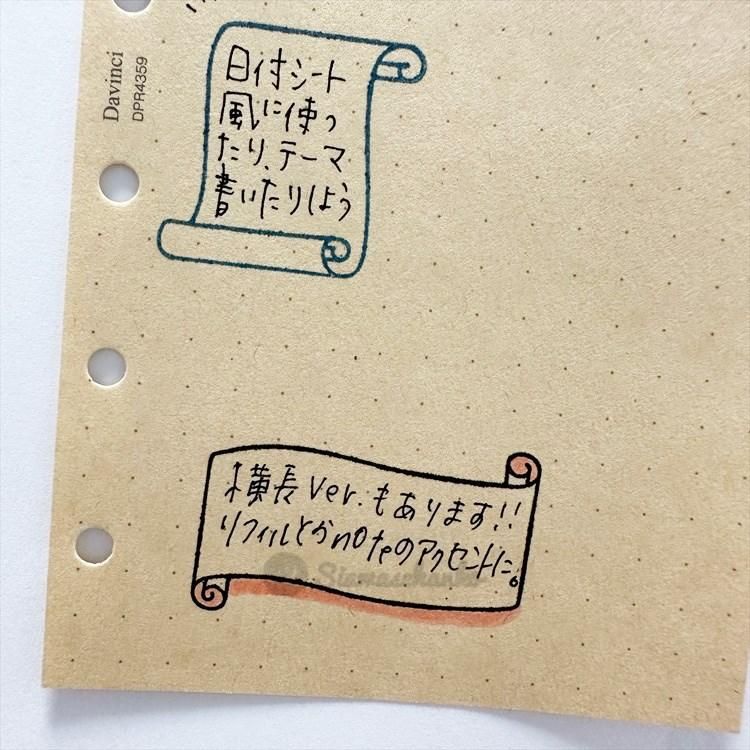 Davinci
DPR4359
日付シート
風に使っ
たり、テーマ
書いたりしよう
横長ver.もあります!!
リフィルとかnoteのアクセントに。